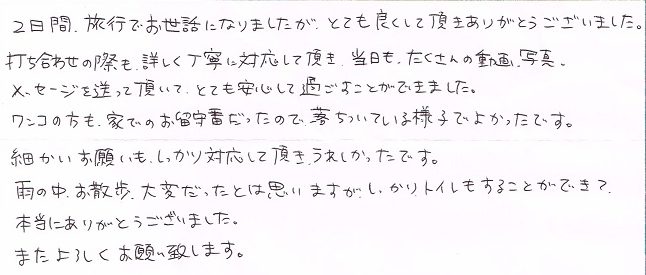 2日間、旅行でお世話になりましたが、とても良くして頂きありがとうございました。
打ち合わせの際も、詳しく丁寧に対応して頂き、当日も、たくさんの動画、写真、
メッセージを送って頂いて、とても安心して過ごすことができました。
ワンコの方も、家でのお留守番だったので、落ちついている様子でよかったです。
細かいお願いも、しっかり対応して頂き、うれしかったです。
雨の中、お散歩、大変だったとは思いますが、しっかりトイレもすることができて、
本当にありがとうございました。
またよろしくお願い致します。